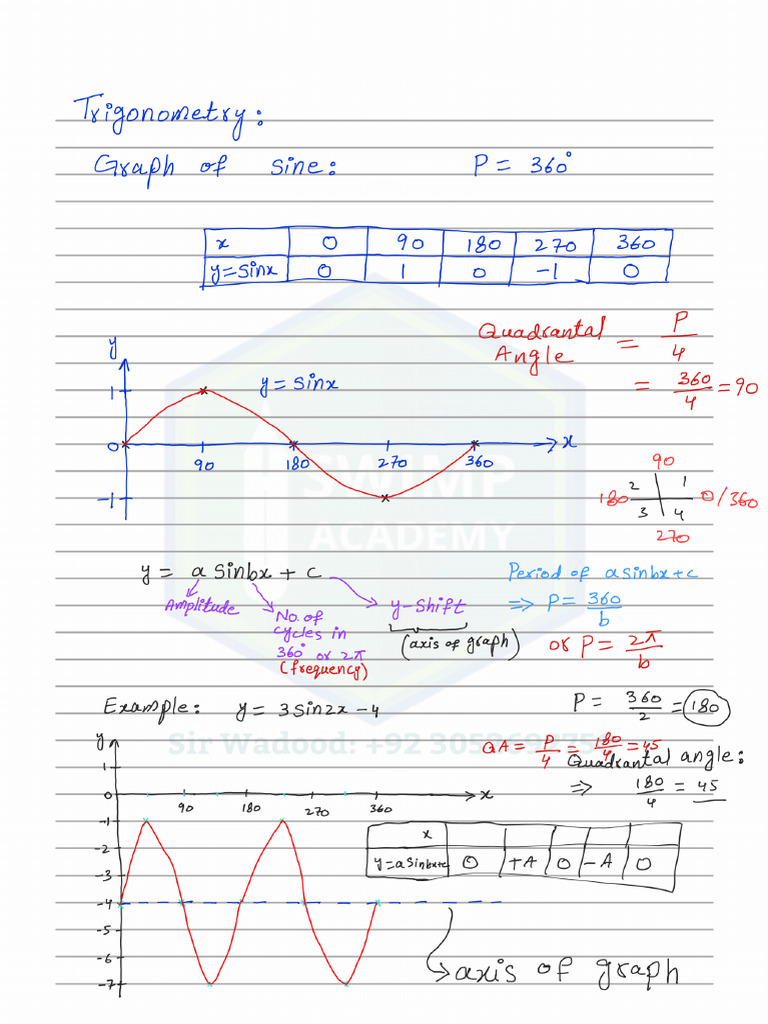 Trigonometry:
Graph of sine: P = 360°
x 0 90 180 270 360
y=sinx 0 1 0 -1 0
Quadrantal Angle = P/4
= 360/4 = 90
y
1
y = sinx
0 90 180 270 360 x
-1
90
180 2 1 0/360
3 4
270
SWIMP
ACADEMY
y = a sinbx + c
Amplitude
No. of
cycles in
360° or 2π
(frequency)
y-shift
(axis of graph)
Period of asinbx+c
⇒ P = 360/b
or P = 2π/b
Example: y = 3sin2x - 4
P = 360/2 = 180
QA = P/4 = 180/4 = 45
Quadrantal angle:
⇒ 180/4 = 45
Sir Wadood: +92 305
y
1
0 90 180 270 360 x
-1
-2
-3
-4
-5
-6
-7
x
y=asinbx+c 0 +A 0 -A 0
axis of graph